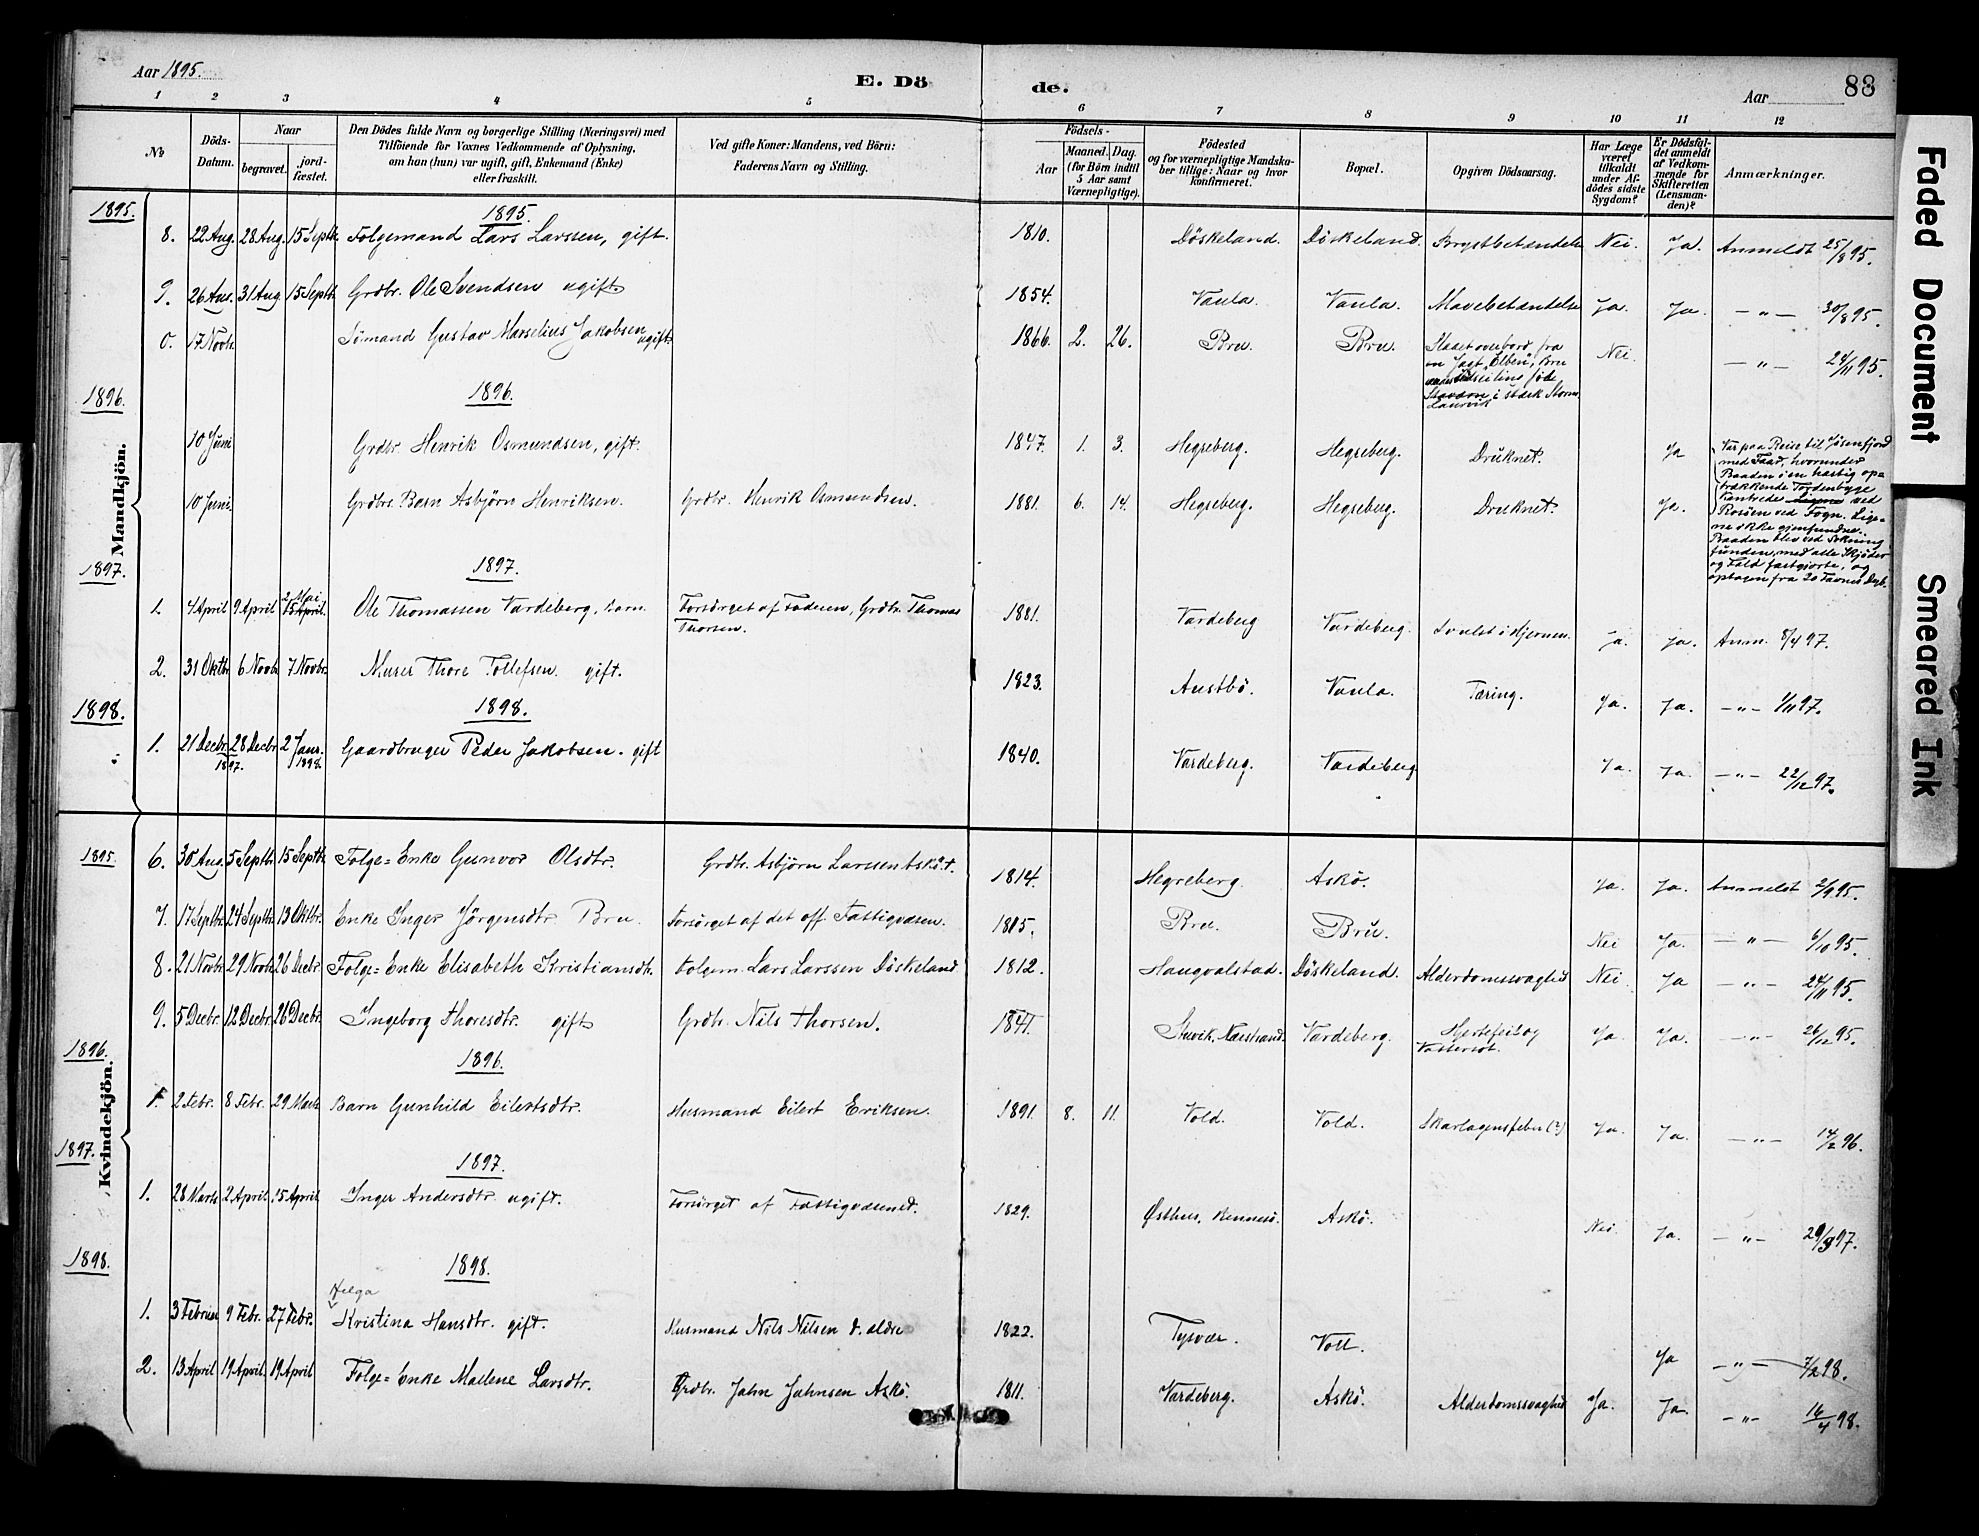 Aar 1895.
E. Dö
de.
Aar
88
1 2 3 4 5 6 7 8 9 10 11 12
No
Döds-Datum.
Naar
begravet.
jord-fæstet.
Den Dödes fulde Navn og borgerlige Stilling (Næringsvei) med
Tilföiende for Voxnes Vedkommende af Oplysning,
om han (hun) var ugift, gift, Enkemand (Enke)
eller fraskilt.
Ved gifte Koner: Mandens, ved Börn:
Faderens Navn og Stilling.
Födsels-
Aar
Maaned. Dag.
(for Börn indtil
5 Aar samt
Værnepligtige).
Födested
og for værnepligtige Mandska-
ber tillige: Naar og hvor
konfirmeret.
Bopæl.
Opgiven Dödsaarsag.
Har Læge
været
tilkaldt
under Af-
dödes sidste
Sygdom?
Er Dödsfal-
det anmeldt
af Vedkom-
mende for
Skifteretten
(Lensman-
den)?
Anmærkninger.
Mandkjön.
1895.
1895.
8. 22 Aug. 28 Aug. 15 Septb. Folgemand Lars Larssen, gift. 1810. Döskeland. Döskeland. Brystbetændelse Nei. Ja. Anmeldt 25/8 95.
9. 26 Aug. 31 Aug 15 Septb. Grdbr. Ole Svendsen ugift 1854. Vaula. Vaula. Mavebetændelse Ja. Ja. — " — 30/8 95.
0. 17 Novb. Sömand Gustav Marselius Jakobsen ugift 1866. 2. 26. Bru. Bru. Slaaet overbord fra
en Jagt "Elben", Bru
i stærk Storm
Laurvik
Nei. — " — 24/11 95.
1896.
1896.
10 Juni Grdbr. Henrik Osmundsen, gift. 1847. 1. 3. Hegreberg. Hegreberg. Druknet. Ja
10 Juni. Grdbrs. Barn Asbjörn Henriksen. Grdbr. Henrik Osmundsen. 1881. 6. 14. Hegreberg. Hegreberg. Druknet. Ja.
Var paa Reise til Jösenfjord
med Faar, hvorunder
Baaden i en hastig opa
trækkende Tordenbyge
kantrede ved
Rosöen ved Fogn. Lige-
ne ikke gjenfundne.
Baaden blev ved Sökning
funden, med alle Skjöder
og Fald fastgjorte, og
optagen fra 20 Favnes Dyb.
1897.
1897.
1. 4 April 9 April 2 Mai 15 April. Ole Thomassen Vardeberg, Barn. Forsörget af Faderen, Grdbr. Thomas
Thorsen. 1881. Vardeberg Vardeberg. Svulst i Hjernen. Ja. Ja. Anm. 8/4 97.
2. 31 Oktb. 6 Novb. 7 Novbr. Murer Thore Tollefsen. gift. 1823. Austbö. Vaula. Tæring. Ja. Ja. — " — 1/11 97.
1898.
1898.
1. 21 Decbr. 28 Decbr 2 Janr. Gaardbruger Peder Jakobsen. gift 1840. Vardeberg. Vardeberg. Ja. Ja. — " — 22/12 97.
1897. 1898.
Kvindekjön.
1895.
6. 30 Aug. 5 Septb. 15 Septb. Folge-Enke Gunvor Olsdtr. Grdbr. Asbjörn Larssen Askö. 1814. Hegreberg. Askö. Ja. Ja. Anmeldt 2/9 95.
7. 17 Septb. 24 Septb. 13 Oktbr. Enke Inger Jörgensdtr Bru. Forsörget af det off. Fattigvæsen. 1815. Bru. Bru. Nei Ja. — " — 6/10 95.
8. 21 Novb. 29 Novb. 26 Decbr. Folge-Enke Elisabeth Kristiansdtr. Folgem. Lars Larssen Döskeland. 1812. Haugvalstad. Döskeland. Alderdomssvaghed Nei Ja — " — 24/11 95.
9. 5 Decbr. 12 Decbr. 26 Decbr. Ingeborg Thoresdtr. gift Grdbr. Nils Thorsen. 1841. Nærstrand. Vardeberg. Hjertefeil og
Vattersot. Ja. Ja. — " — 26/12 95.
1896.
1896.
1. 2 Febr. 8 Febr. 29 Marts Barn Gunhild Eilertsdtr. Husmand Eilert Eriksen. 1891. 8. 11. Vold. Vold. Skarlagensfeber (?) Ja. Ja. — " — 14/2 96.
1897.
1897.
1. 28 Marts 2 April. 15 April Inger Andersdtr ugift. Forsörget af Fattigvæsenet. 1829. Østhus, Rennesö. Askö. Nei. Ja. — " — 29/3 97.
1898.
1898.
Helga
1. 3 Februar 9 Febr. 27 Febr. Kristina Hansdtr. gift. Husmand Nils Nilsen d. ældre 1822. Tysvær. Voll. Ja — " — 7/2 98.
2. 13 April 19 April 19 April Folge-Enke Malene Larsdtr. Grdbr. Jahn Jahnsen Askö. 1811. Vardeberg. Askö. Alderdomssvaghed Ja. Ja. — " — 16/4 98.
Faded Document
Smeared Ink